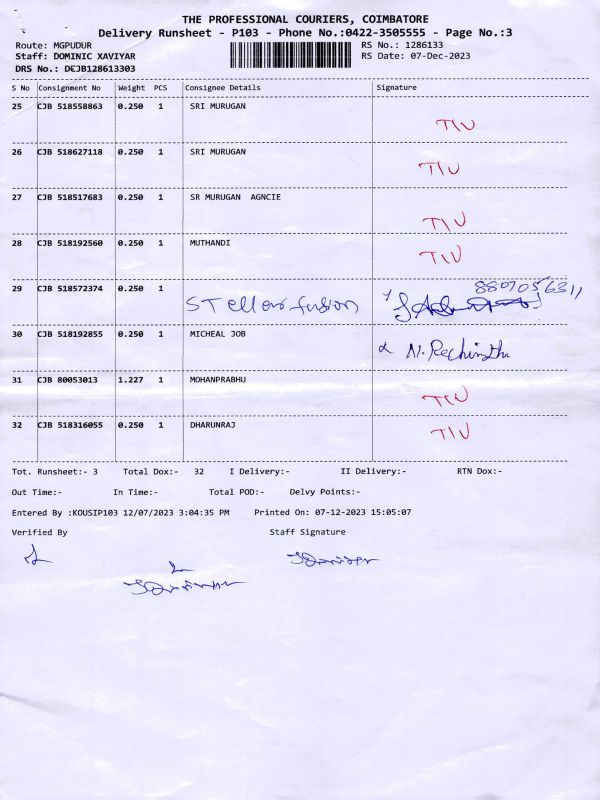 THE PROFESSIONAL COURIERS, COIMBATORE
Delivery Runsheet - P103 - Phone No.:0422-3505555 - Page No.:3
Route: MGPUDUR RS No.: 1286133
Staff: DOMINIC XAVIYAR RS Date: 07-Dec-2023
DRS No.: DEJB128613303
S No Consignment No Weight PCS Consignee Details Signature
25 CJB 518558863 0.250 1 SRI MURUGAN
TIU
26 CJB 518627118 0.250 1 SRI MURUGAN
TIU
27 CJB 518517683 0.250 1 SR MURUGAN AGNCIE
TIU
28 CJB 518192560 0.250 1 MUTHANDI
TIU
29 CJB 518572374 0.250 1
STellar fusion
30 CJB 518192855 0.250 1 MICHEAL JOB
31 CJB 80053013 1.227 1 MOHANPRABHU
TIU
32 CJB 518316055 0.250 1 DHARUNRAJ
TIU
Tot. Runsheet:- 3 Total Dox:- 32 I Delivery:- II Delivery:- RTN Dox:-
Out Time:- In Time:- Total POD:- Delvy Points:-
Entered By :KOUSIP103 12/07/2023 3:04:35 PM Printed On: 07-12-2023 15:05:07
Verified By Staff Signature